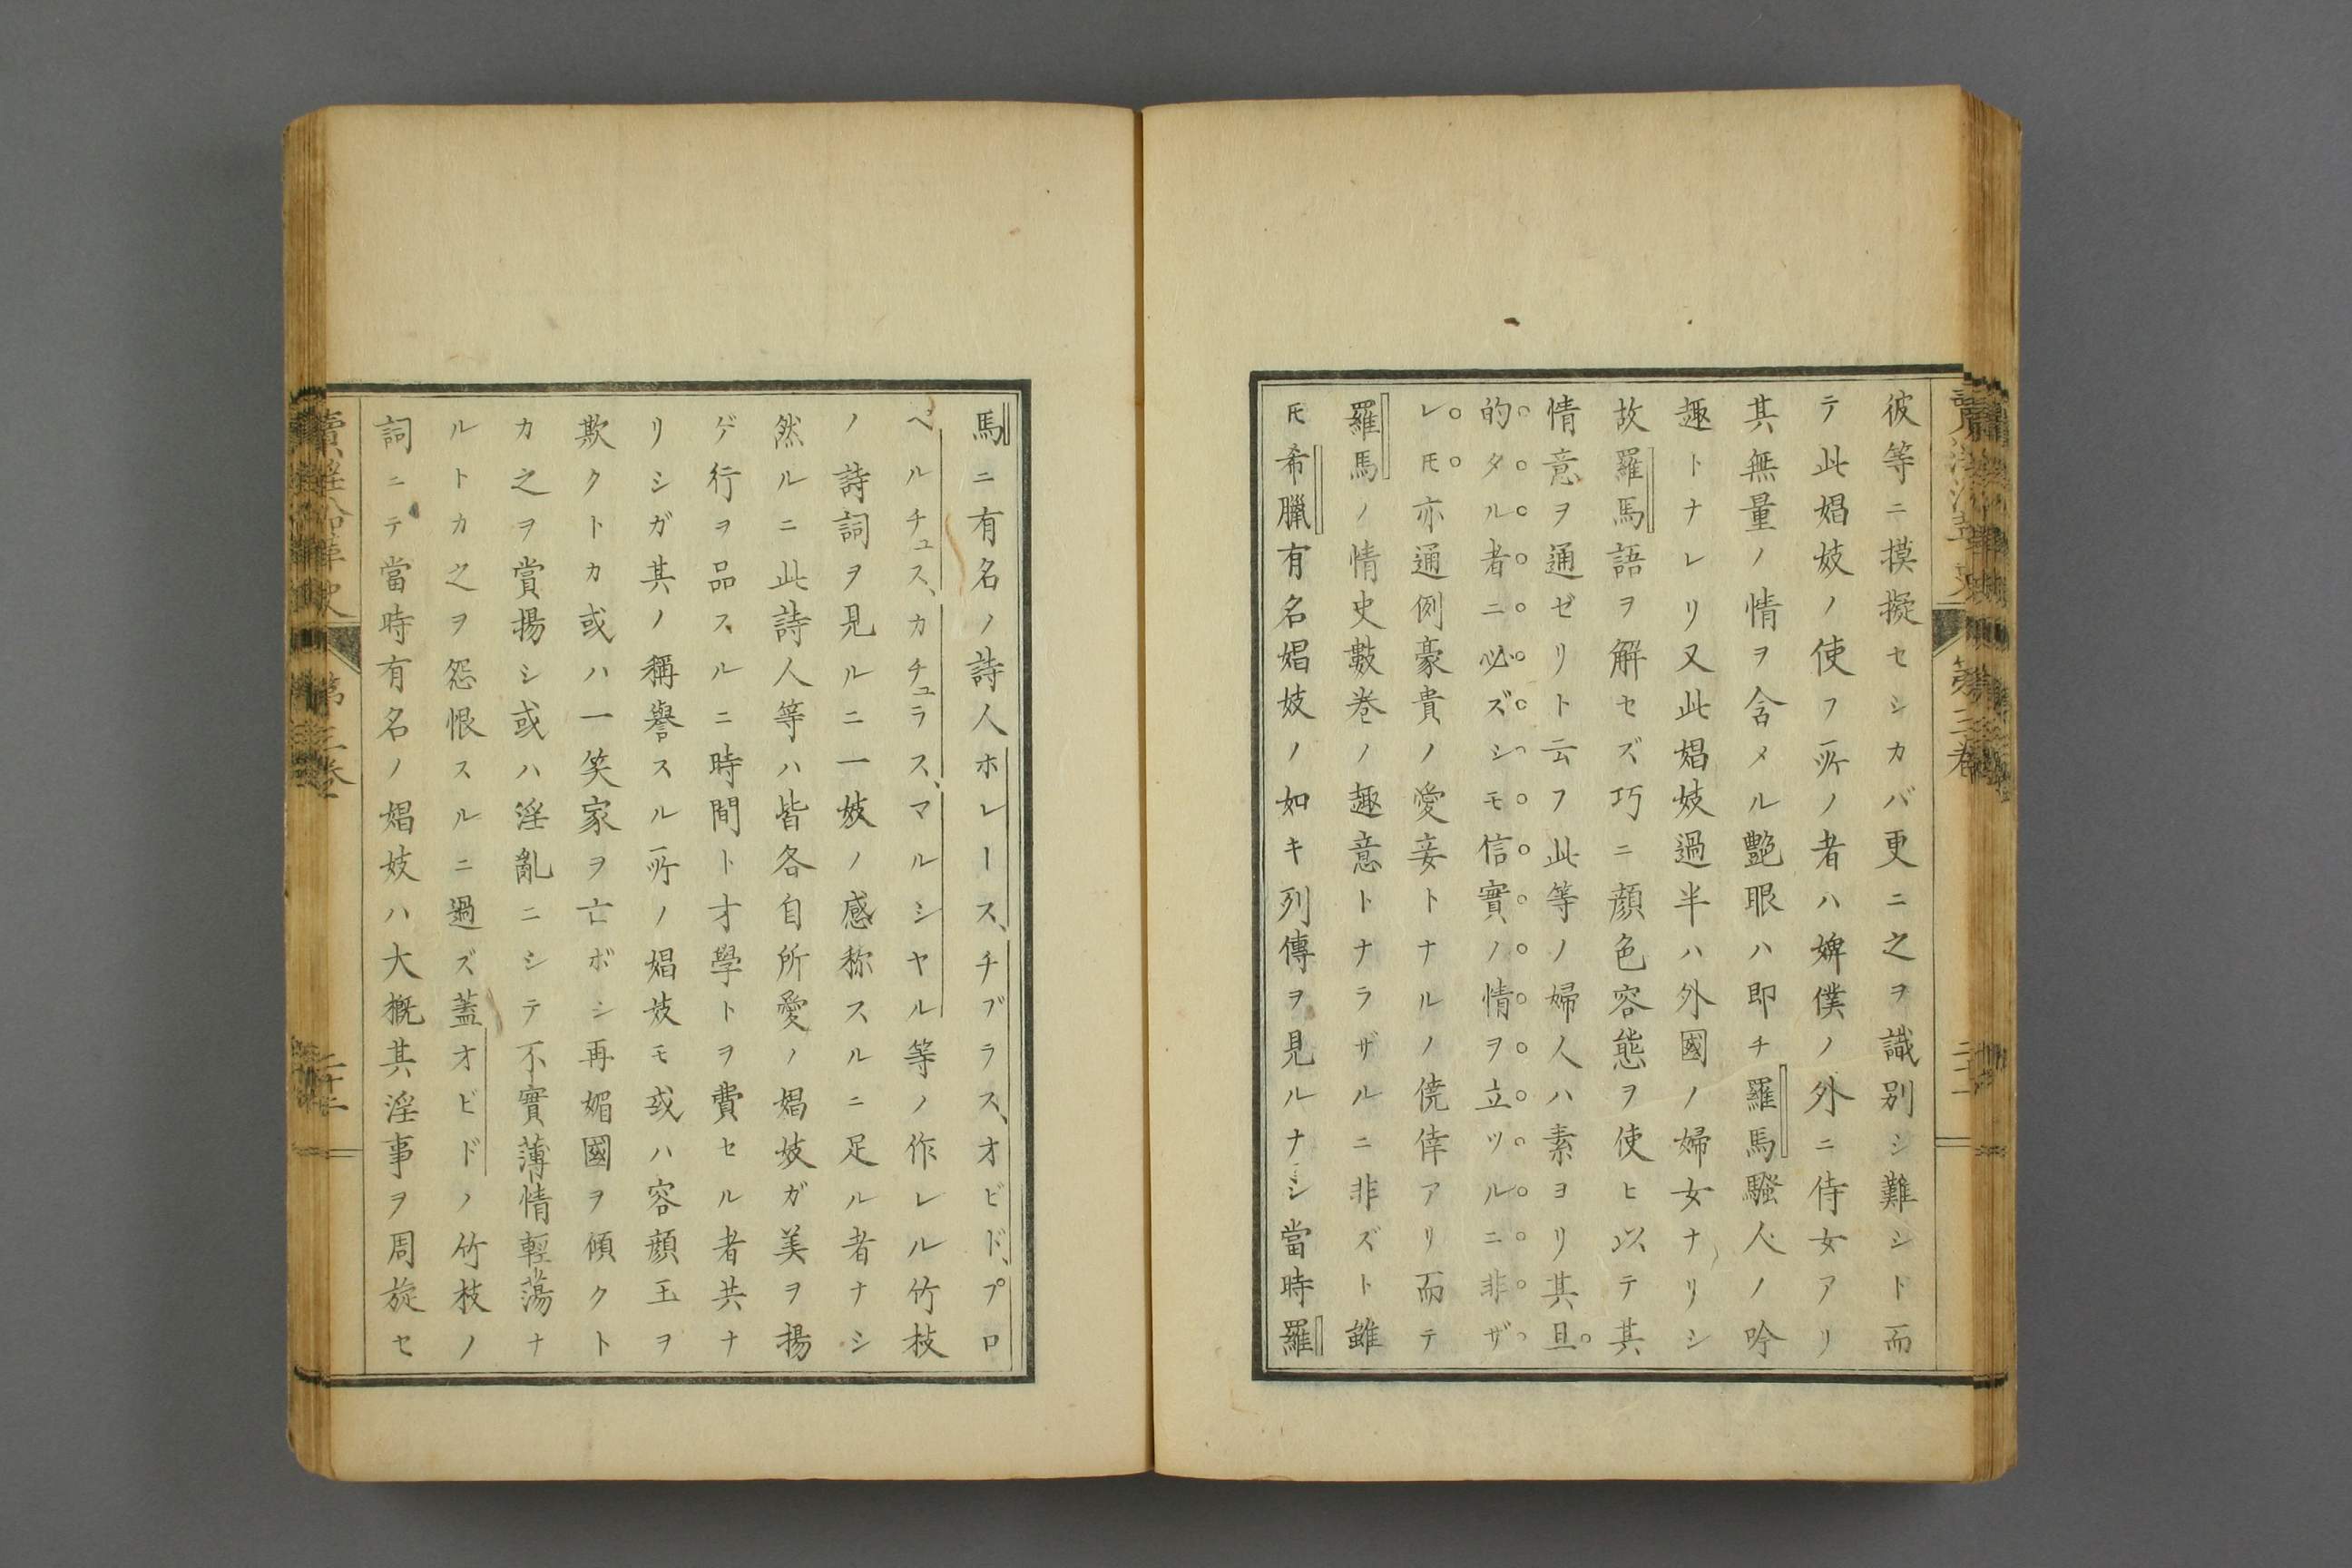 彼等ニ摸擬セシカバ更ニ之ヲ識別シ難シト而
テ此娼妓ノ使フ所ノ者ハ婢僕ノ外ニ侍女アリ
其無量ノ情ヲ含メル艶眼ハ即チ羅馬騷人ノ吟
趣トナレリ又此娼妓過半ハ外國ノ婦女ナリシ
故羅馬語ヲ解セズ巧ニ顔色容態ヲ使ヒ以テ其
情意ヲ通ゼリト云フ此等ノ婦人ハ素ヨリ其旦
的タル者ニ必ズシモ信實ノ情ヲ立ツルニ非ザ
レ𪜈亦通例豪貴ノ愛妾トナルノ僥倖アリ而テ
羅馬ノ情史數巻ノ趣意トナラザルニ非ズト雖
𪜈希臘有名娼妓ノ如キ列傳ヲ見ルナシ當時羅
馬ニ有名ノ詩人ホレース、チブラス、オビド、プロ
ペルチュス、カチュラス、マルシヤル等ノ作レル竹枝
ノ詩詞ヲ見ルニ一妓ノ感称スルニ足ル者ナシ
然ルニ此詩人等ハ皆各自所愛ノ娼妓ガ美ヲ揚
ゲ行ヲ品スルニ時間ト才學トヲ費セル者共ナ
リシガ其ノ稱譽スル所ノ娼妓モ或ハ容顔玉ヲ
欺クトカ或ハ一笑家ヲ亡ボシ再媚國ヲ傾クト
カ之ヲ賞揚シ或ハ淫亂ニシテ不實薄情輕蕩ナ
ルトカ之ヲ怨恨スルニ過ズ蓋オビドノ竹枝ノ
詞ニテ當時有名ノ娼妓ハ大概其淫事ヲ周旋セ
第三巻
二十二